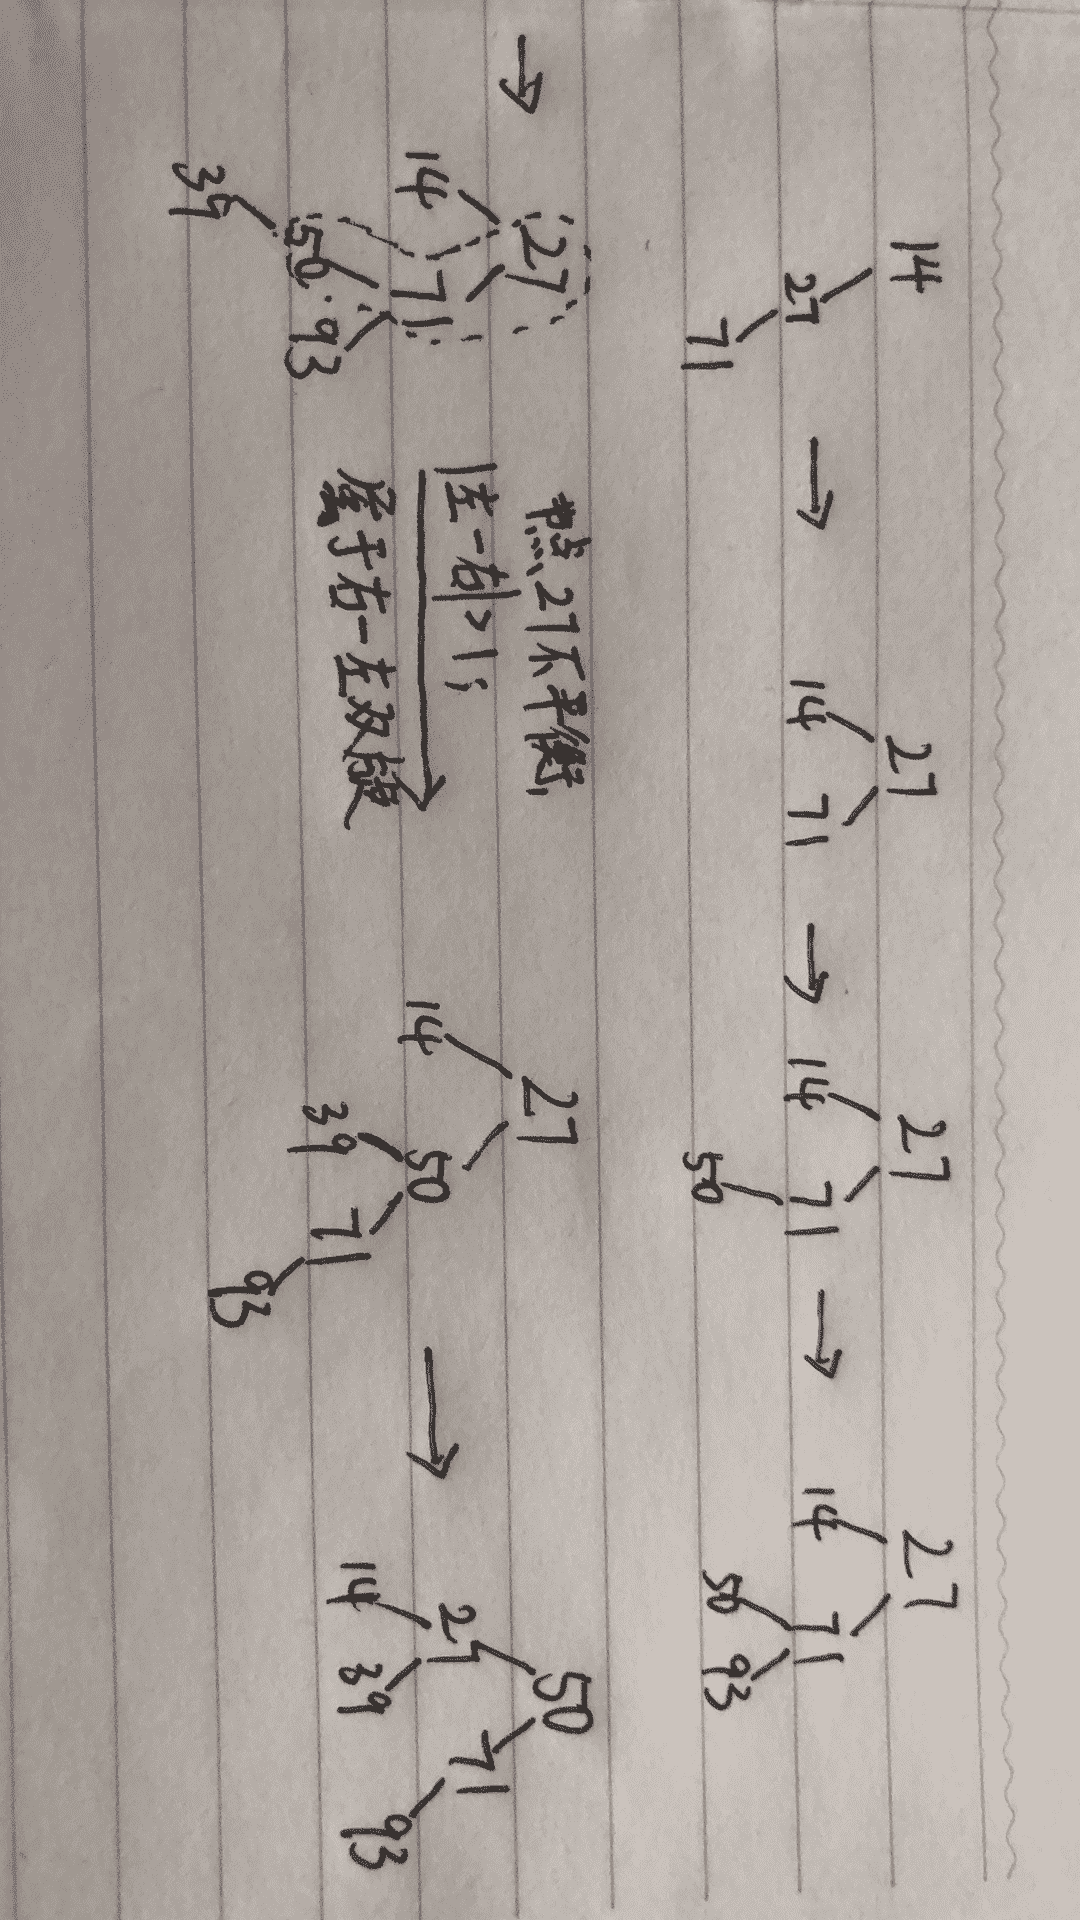 14
27
71
→
27
14 71
→
27
14 71
50
→
27
14 71
50 93
→
27
14 71
50 93
39
节点27不平衡,
|左-右|>1;
属于右-左双旋
27
14 50
39 71
93
→
50
27 71
14 39 93